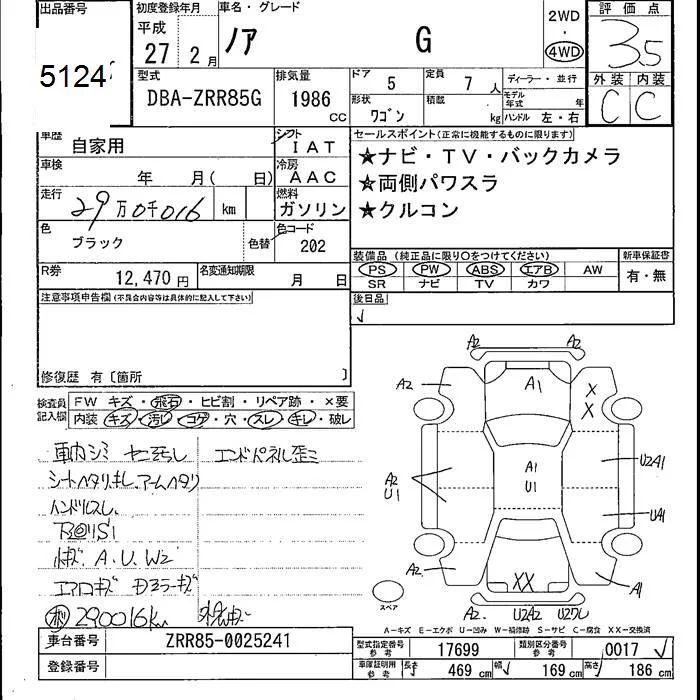 出品番号 初度登録年月 車名・グレード 2WD 評価点
平成
27 2月 ノア G 4WD 3.5
5124
型式 排気量 ドア 5 定員 7人 ディーラー・並行 外装 内装
DBA-ZRR85G 1986cc 形状 ワゴン 積載 kg モデル年式 年 C C
ハンドル 左・右
車歴 自家用 シフト IAT セールスポイント(正常に機能するものに限ります)
車検 年 月( 日) 冷房 AAC ★ナビ・TV・バックカメラ
走行 29万0千016 km 燃料 ガソリン ★両側パワスラ
★クルコン
色 ブラック 色替 色コード 202
装備品(純正品に限り○をつけてください) 新車保証書
PS PW ABS エアB AW 有・無
SR ナビ TV カワ
R券 12,470円 名変通知期限 月 日
後日品
注意事項申告欄(不具合内容等は具体的に記入して下さい)
修復歴 有〔箇所 〕
検査員記入欄 FW キズ・飛石・ヒビ割・リペア跡・×要
内装 キズ・汚し・コゲ・穴・スレ・キレ・破レ
車内シミ エンドパネル歪ミ
ハンドルスレ
A.U.W2
エアロキズ ドアミラーキズ
290016km
A2 A2
A2 A1 X
X
A1
U1
A2
U1
U2A1
UA1
XX
A2 A1
A2 U2A2
スペア
A-キズ E-エクボ U-凹み W-補修跡 S-サビ C-腐食 XX-交換済
車台番号 ZRR85-0025241
登録番号
型式指定番号 参考 17699 類別区分番号 参考 0017
車庫証明用 参考 長さ 469cm 幅 169cm 高さ 186cm